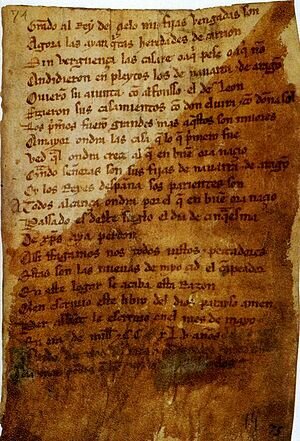 Grado al Rey del çielo mis fijas vengadas son
Agora las ayan qtas heredades de carrion
Sin verguença las casare o a q pese o a q nõ
Andidieron en pleytos los de nauarra & de aragõ
Ouierõ su aiunta cõ alfonsso el de Leon
Fizieron sus casamientos cõ don eluira & cõ doña sol
Los pmos fuerõ grandes mas aqstos son miiores
A mayor ondra las casa q lo q pmero fue
Ved ql ondra creçe al q en buẽ ora naçio
Qndo señoras son sus fijas de nauarra & de aragõ
Oy los Reyes despaña sos parientes son
A todos alcança ondra por el q en buẽ ora naçio
Passado es deste sieglo el dia de cinqsma
De xp̃s aya perdon
Assi ffagamos nos todos iustos & peccadores
Estas son las nueuas de myo çid el campeador
En este logar se acaba esta Razon
Quien escriuio este libro del dios parayso amen
Per abbat le escriuio en el mes de mayo
En era de mill & CC XLV años